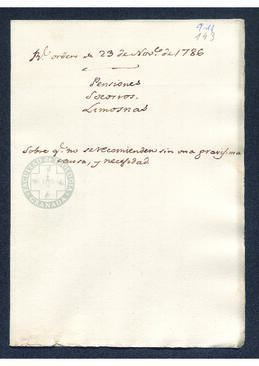 9-11
143
Rl. orden de 23 de Nov.e de 1786
Pensiones
Socorros.
Limosnas
Sobre q.e no se recomienden sin una gravissima
causa, y necesidad
GRANADA